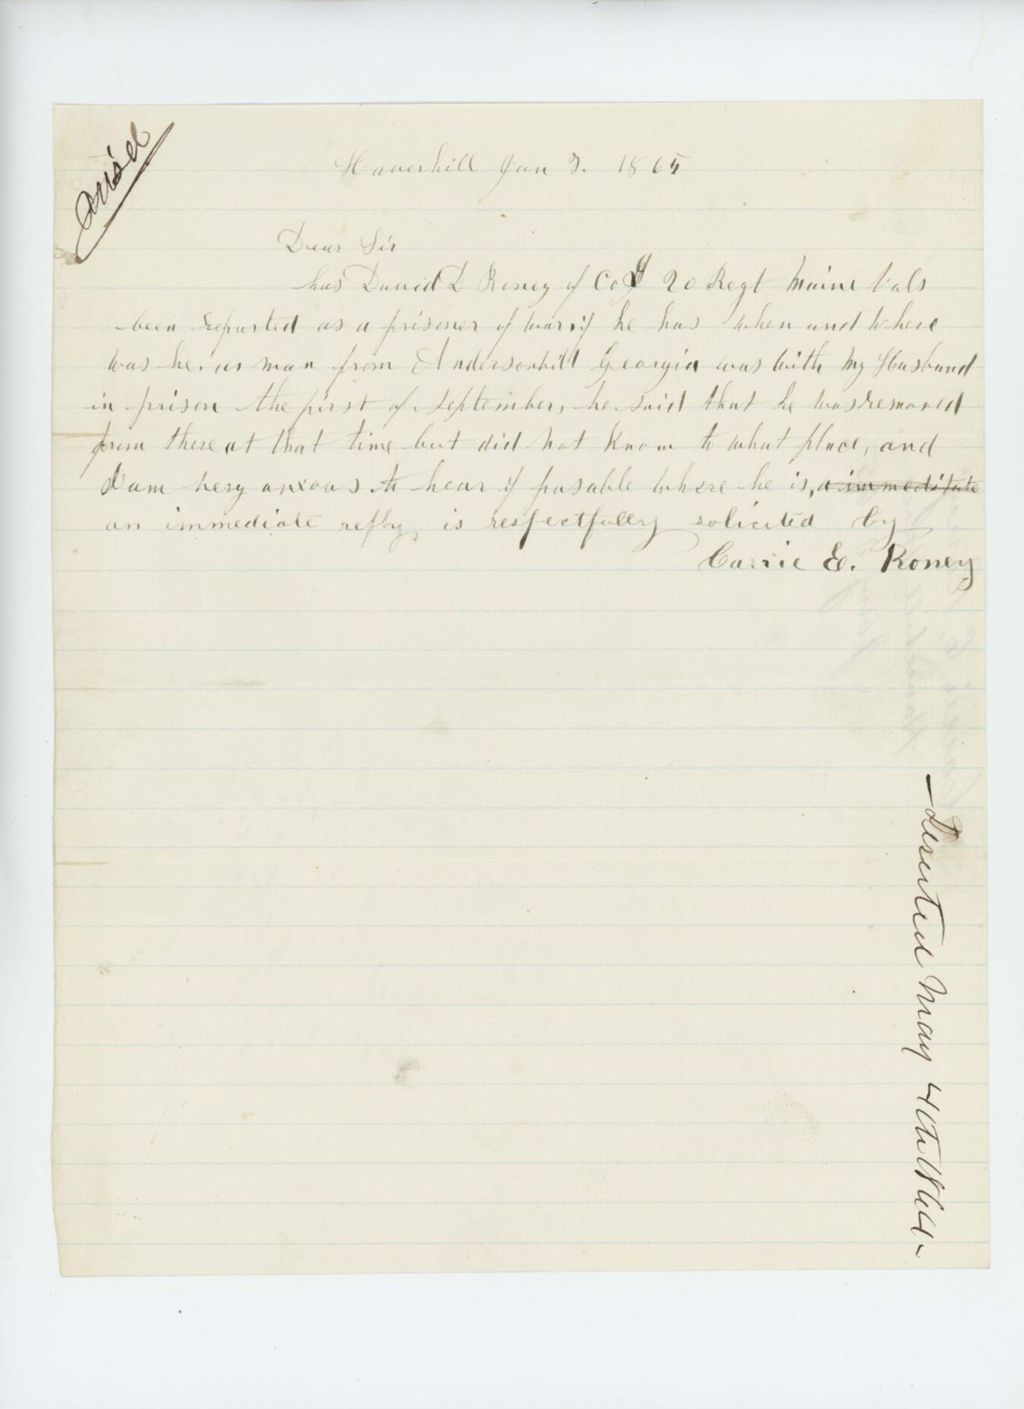 Ans'd
Haverhill Jan 9. 1865
Dear Sir
has David L Roney of Co I 20 Regt Maine Vols
been reported as a prisoner of war, if he has when and where
was he, a man from Andersonvill Georgia was with my Husband
in prison the first of September, he said that he was removed
from there at that time but did not know to what place, and
I am very anxous to hear if posable where he is, a immeditate
an immediate reply, is respectfully solicited by
Carrie E. Roney
-deserted May 4th 1864-